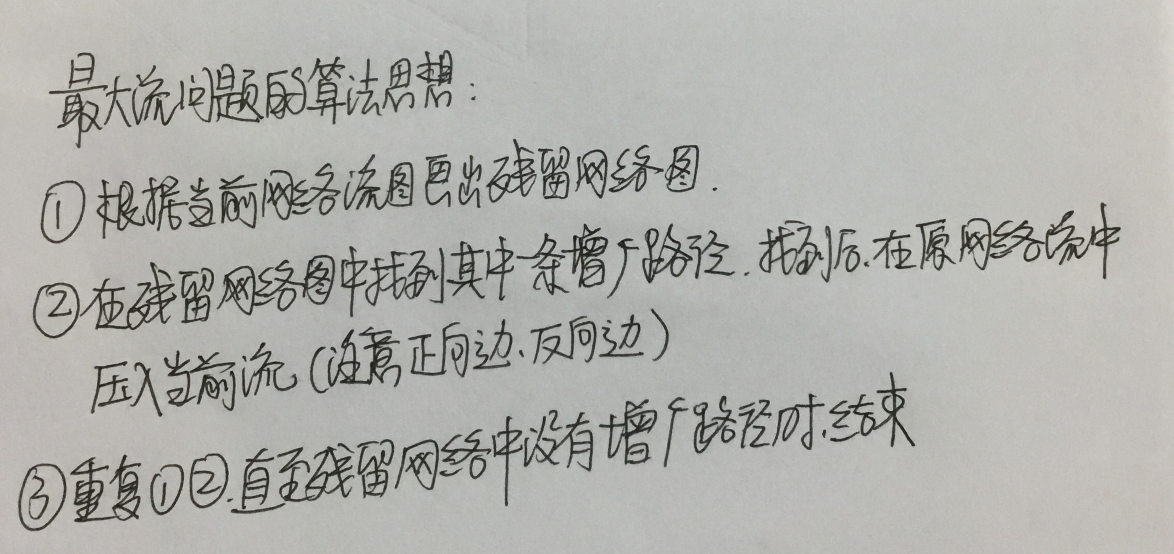 最大流问题的算法思想：
①根据当前网络流图画出残留网络图.
②在残留网络图中找到其中一条增广路径.找到后.在原网络流中
压入当前流(注意正向边、反向边)
③重复①②.直至残留网络中没有增广路径时.结束